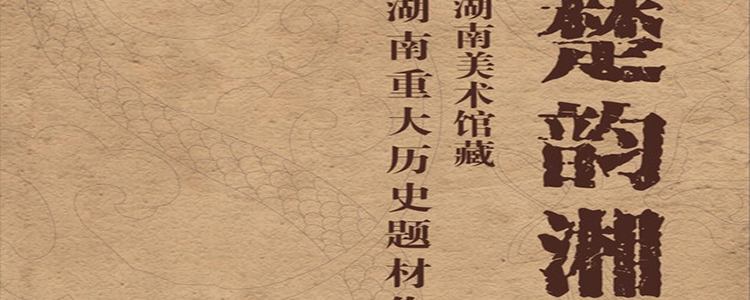 楚韵湘
湖南美术馆藏
湖南重大历史题材